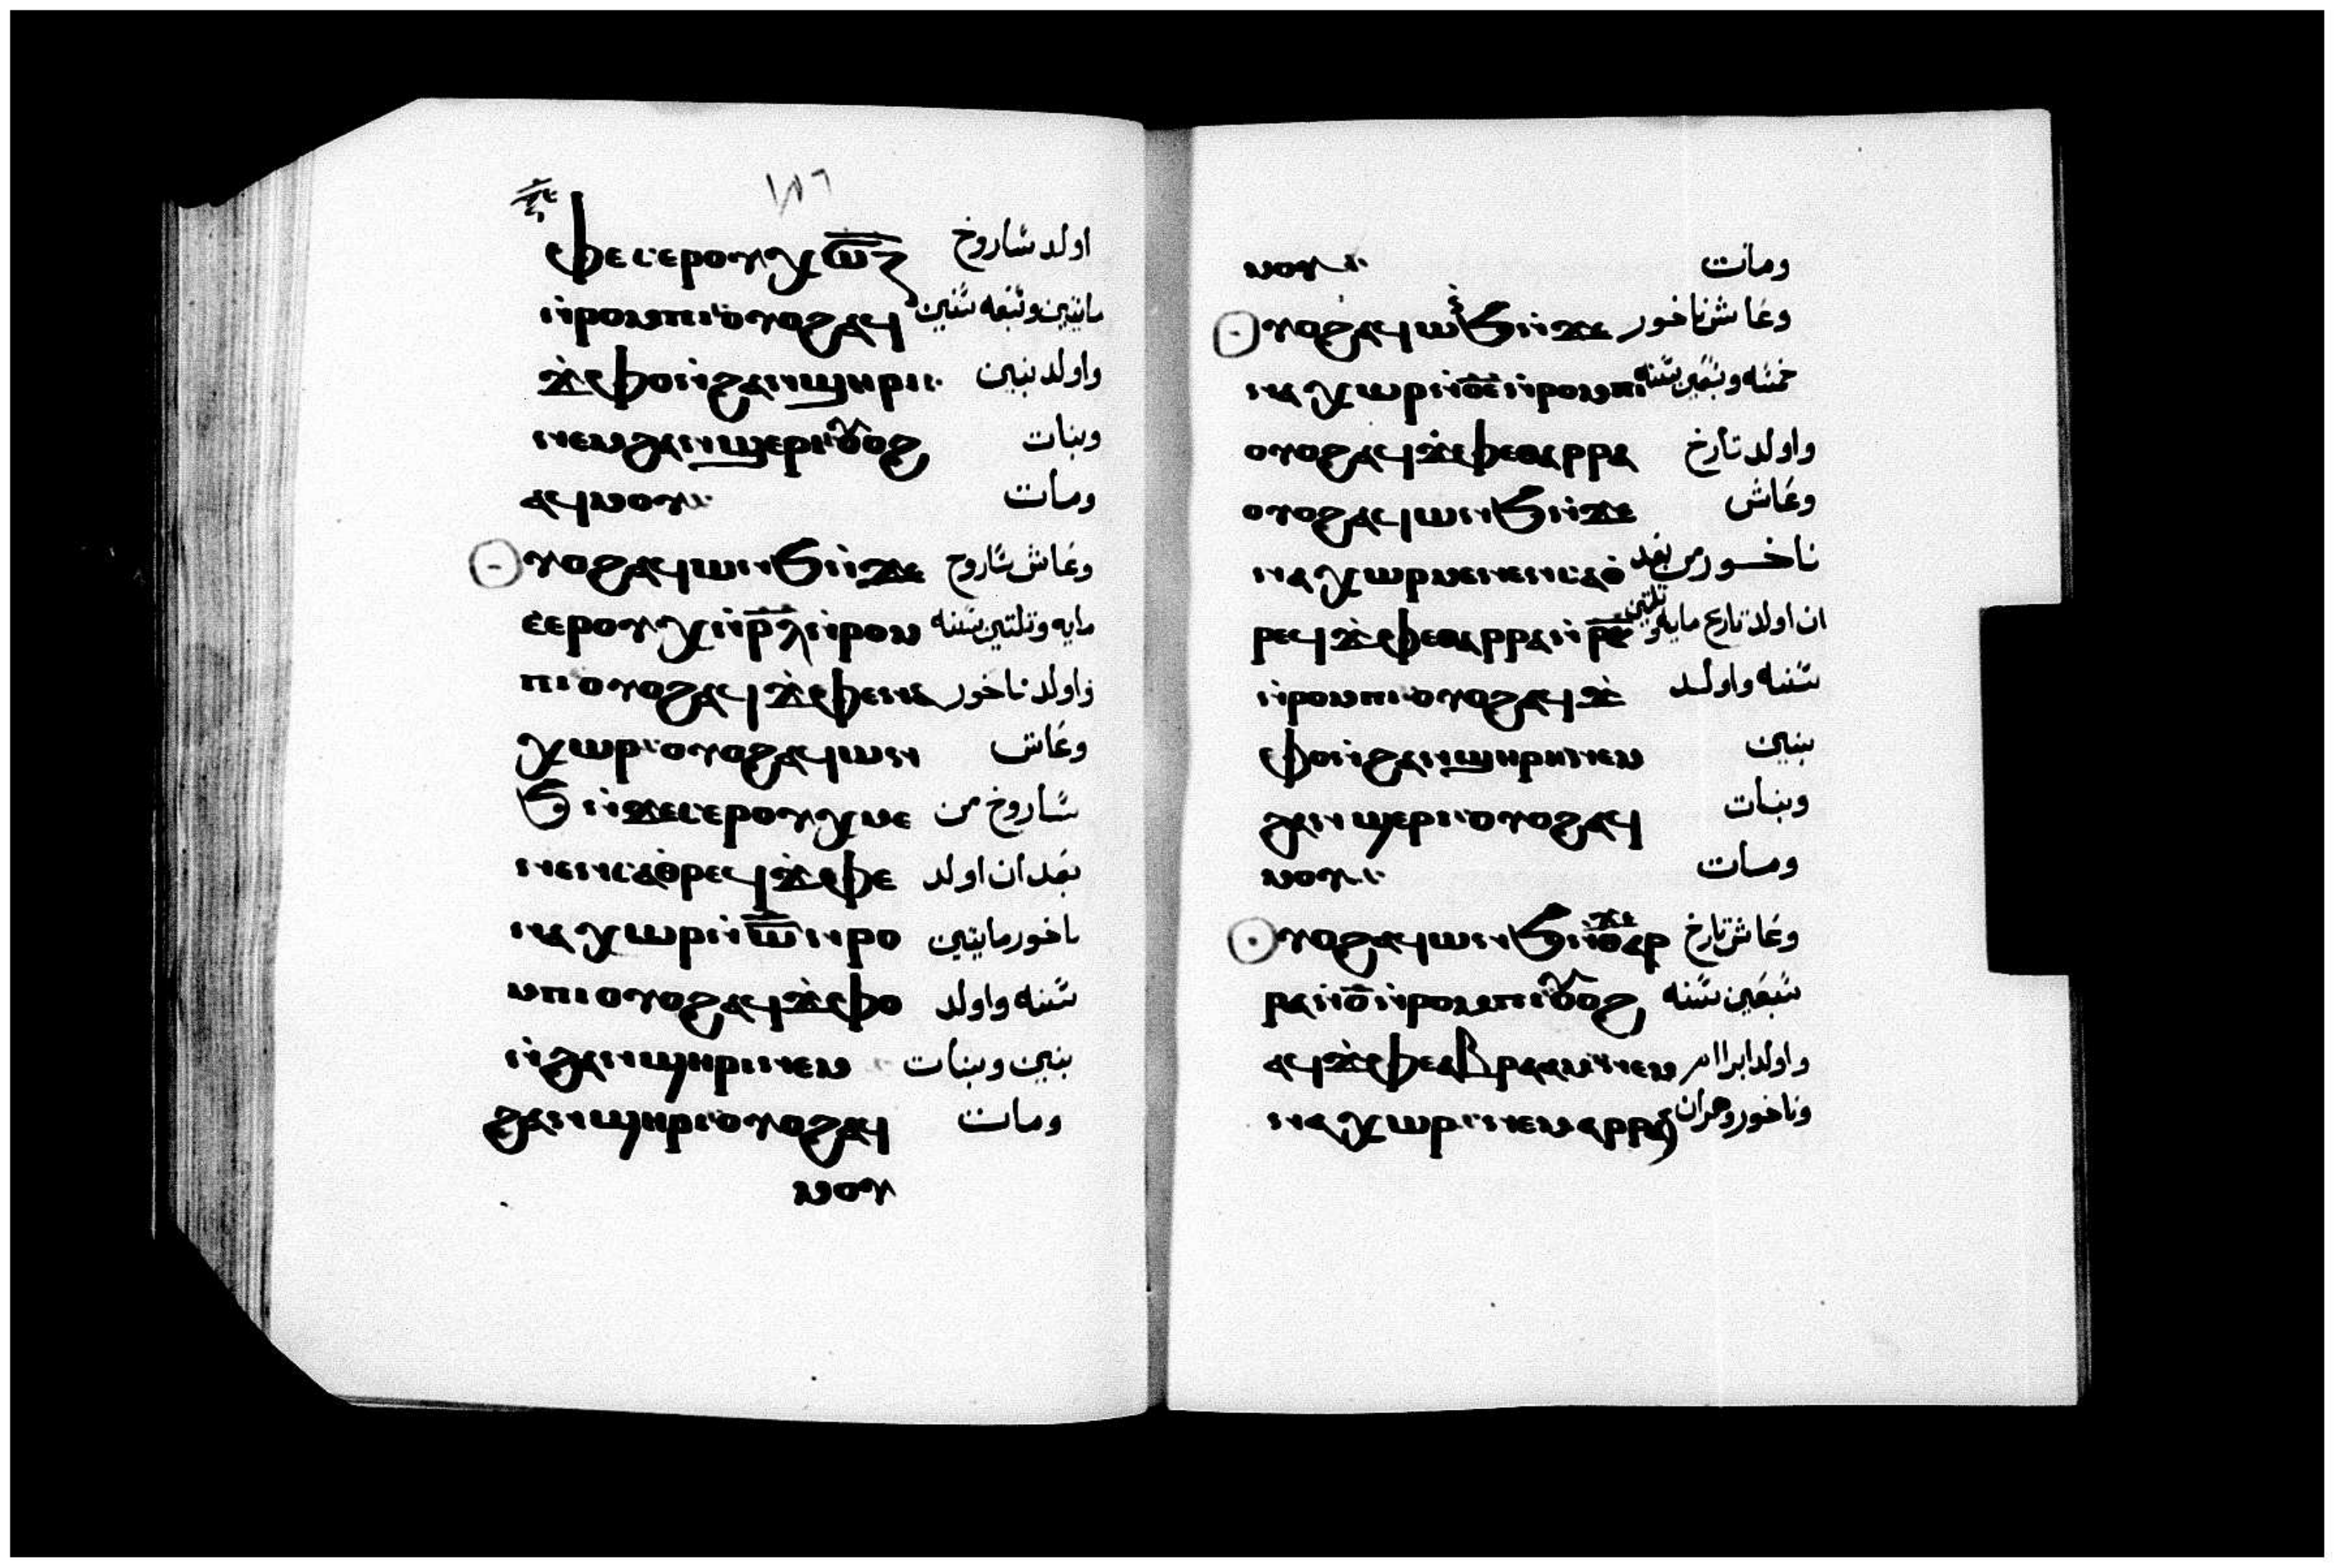 ⲫⲉ ⲥⲉⲣⲟⲩⲭ ⲛ̅ⲥ̅ⲍ̅ اولد شاروخ
ⲛ̀ⲣⲟⲙⲡⲓ ⲟⲩⲟϩ ⲁϥ مايتين وسبعه سنين
ϫ̀ⲫⲟ ⲛ̀ϩⲁⲛϣⲏⲣⲓ واولد بنين
ⲛⲉⲙ ϩⲁⲛϣⲉⲣⲓ ⲟⲩⲟϩ وبنات
ⲁϥⲙⲟⲩ ومات
ⲟⲩⲟϩ ⲁϥⲱⲛϧ ⲛ̀ϫⲉ وعاش شاروح
ⲥⲉⲣⲟⲩⲭ ⲛ̀ⲣ̅ⲗ̅ ⲛ̀ⲣⲟⲙ مايه وتلتين سنه
ⲡⲓ ⲟⲩⲟϩ ⲁϥϫ̀ⲫⲉ ⲛⲁ واولد ناخور
ⲭⲱⲣ ⲟⲩⲟϩ ⲁϥⲱⲛ وعاش
ϧ ⲛ̀ϫⲉ ⲥⲉⲣⲟⲩⲭ ⲙⲉ شاروخ من
ⲛⲉⲛⲥⲁ ⲑⲣⲉϥϫ̀ⲫⲉ بعد ان اولد
ⲛⲁⲭⲱⲣ ⲛ̀ⲥ̅ ⲛ̀ⲣⲟ ناخور مايتين
ⲙⲡⲓ ⲟⲩⲟϩ ⲁϥϫ̀ⲫⲟ سنه واولد
ⲛ̀ϩⲁⲛϣⲏⲣⲓ ⲛⲉⲙ بنين وبنات
ϩⲁⲛϣⲏⲣⲓ ⲟⲩⲟϩ ⲁϥ ومات
ⲙⲟⲩ
ⲙⲟⲩ ومات
ⲟⲩⲟϩ ⲁϥⲱⲛϧ ⲛ̀ϫⲉ وعاش ناخور
ⲛⲁⲭⲱⲣ ⲛ̀ⲟ̅ⲉ̅ ⲛ̀ⲣⲟⲙⲡⲓ خمسه وسبعين سنه
ⲟⲩⲟϩ ⲁϥϫ̀ⲫⲉ ⲑⲁⲣⲣⲁ واولد تارخ
ⲟⲩⲟϩ ⲁϥⲱⲛϧ ⲛ̀ϫⲉ وعاش
ⲛⲁⲭⲱⲣ ⲙⲉⲛⲉⲛⲥⲁ ⲑ ناخور من بعد
ⲣⲉϥϫ̀ⲫⲉ ⲑⲁⲣⲣⲁ ان اولد تارح مايه وتلتين
ⲛ̀ⲣⲟⲙⲡⲓ ⲟⲩⲟϩ ⲁϥϫ̀ سنه واولد
ⲫⲟ ⲛ̀ϩⲁⲛϣⲏⲣⲓ ⲛⲉⲙ بنين
ϩⲁⲛϣⲉⲣⲓ ⲟⲩⲟϩ ⲁϥ وبنات
ⲙⲟⲩ ومات
ⲟⲩⲟϩ ⲁϥⲱⲛϧ ⲛ̀ϫⲉ ⲑⲁⲣ وعاش تارخ
ⲣⲁ ⲛ̀ⲟ̅ ⲛ̀ⲣⲟⲙⲡⲓ ⲟⲩⲟϩ سبعين سنه
ⲁϥϫ̀ⲫⲉ ⲁⲃⲣⲁⲁⲙ ⲛⲉⲙ واولد ابراام
ⲛⲁⲭⲱⲣ ⲛⲉⲙ ⲁⲣⲣⲁⲛ وناخور وهران